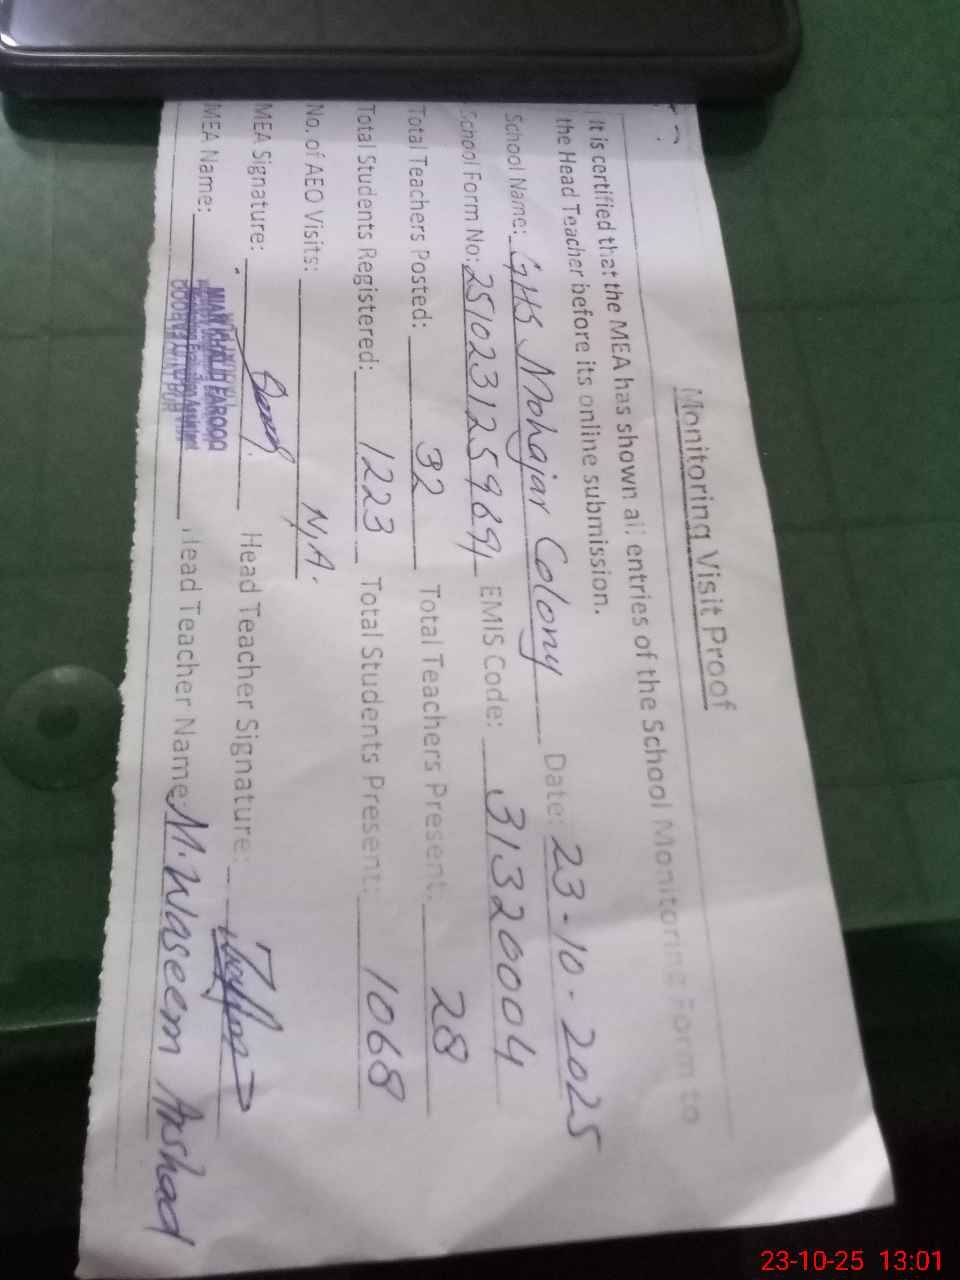 Monitoring Visit Proof
It is certified that the MEA has shown all entries of the School Monitoring Form to
the Head Teacher before its online submission.
School Name: GHS Mohajar Colony Date: 23-10-2025
School Form No: 2510231259691 EMIS Code: 31320004
Total Teachers Posted: 32 Total Teachers Present: 28
Total Students Registered: 1223 Total Students Present: 1068
No. of AEO Visits: N/A.
MEA Signature: Head Teacher Signature:
MEA Name: MIAN KHALID FAROOQ Head Teacher Name: M. Waseem Arshad
23-10-25 13:01